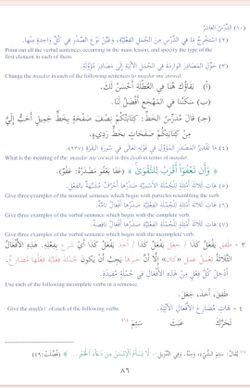 (١٠) الدَّرْسُ العَاشِرُ
(٢) اسْتَخْرِجْ مَا فِي الدَّرْسِ مِنَ الجُمَلِ الفِعْلِيَّةِ، وَعَيِّنْ نَوْعَ الصَّدْرِ فِي كُلِّ وَاحِدَةٍ مِنْهَا.
Point out all the verbal sentences occurring in the main lesson, and specify the type of the
first element in each of them.
(٣) حَوِّلِ المَصَادِرَ الوَارِدَةَ فِي الجُمَلِ الآتِيَةِ إِلَى مَصَادِرَ مُؤَوَّلَةٍ.
Change the masdar in each of the following sentences to masdar mu'awwal.
(أ) بَقَاؤُكَ هُنَا فِي العُطْلَةِ أَحْسَنُ لَكَ.
(ب) سَكَنُنَا فِي المَهْجَعِ أَفْضَلُ لَنَا.
(جـ) قَالَ مُدَرِّسُ الخَطِّ: كِتَابَتُكُمْ نِصْفَ صَفْحَةٍ بِخَطٍّ جَمِيلٍ أَحَبُّ إِلَيَّ
مِنْ كِتَابَتِكُمْ صَفَحَاتٍ بِخَطٍّ رَدِيءٍ.
(٤) مَا تَقْدِيرُ المَصْدَرِ المُؤَوَّلِ فِي قَوْلِهِ تَعَالَى فِي سُورَةِ البَقَرَةِ (٢٣٧)
What is the meaning of the masdar mu'awwal in this âyah in terms of masdar:
﴿ وَأَن تَعْفُوٓا۟ أَقْرَبُ لِلتَّقْوَىٰ ﴾ (عَفَا يَعْفُو مَصْدَرُهُ: عَفْوٌ).
(٥) هَاتِ ثَلَاثَةَ أَمْثِلَةٍ لِلْجُمْلَةِ الاسْمِيَّةِ صَدْرُهَا أَحْرُفٌ مُشَبَّهَةٌ بِالْفِعْلِ.
Give three examples of the nominal sentence which begin with particles resembling the verb.
(٦) هَاتِ ثَلَاثَةَ أَمْثِلَةٍ لِلْجُمْلَةِ الفِعْلِيَّةِ صَدْرُهَا أَفْعَالٌ تَامَّةٌ.
Give three examples of the verbal sentence which begin with the complete verb.
(٧) هَاتِ ثَلَاثَةَ أَمْثِلَةٍ لِلْجُمْلَةِ الفِعْلِيَّةِ صَدْرُهَا أَفْعَالٌ نَاقِصَةٌ.
Give three examples of the verbal sentence which begin with the incomplete verb.
٣ - طَفِقَ يَفْعَلُ كَذَا / جَعَلَ يَفْعَلُ كَذَا / أَخَذَ يَفْعَلُ كَذَا أَيْ شَرَعَ يَفْعَلُهُ. هَذِهِ الأَفْعَالُ
الثَّلَاثَةُ تَعْمَلُ عَمَلَ «كَانَ» إِلَّا أَنَّ خَبَرَهَا يَجِبُ أَنْ يَكُونَ جُمْلَةً فِعْلِيَّةً فِعْلُهَا مُضَارِعٌ.
أَدْخِلْ كُلَّ فِعْلٍ مِنْ هَذِهِ الأَفْعَالِ فِي جُمْلَةٍ مُفِيدَةٍ.
Use each of the following incomplete verbs in a sentence.
طَفِقَ، أَخَذَ، جَعَلَ.
Give the muḍâri' of each of the following verbs. ٤ - هَاتِ مُضَارِعَ الأَفْعَالِ الآتِيَةِ.
تَحَرَّكَ عَبَثَ سَئِمَ
٨٦